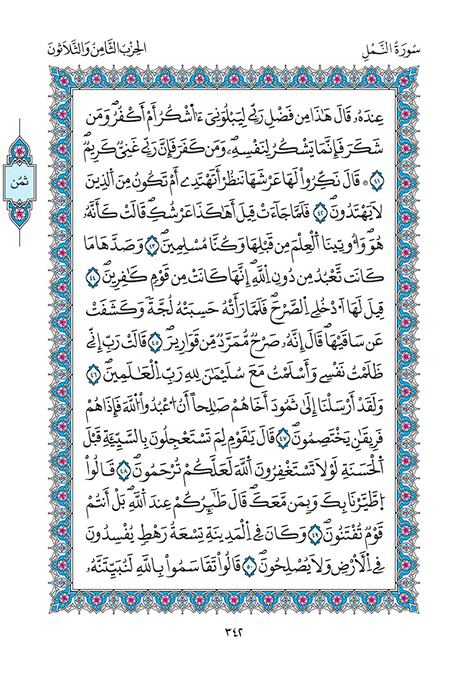 سُورَةُ النَّمْلِ
الحِزْبُ الثَّامِنُ وَالثَّلَاثُونَ
عِندَهُۥ قَالَ هَٰذَا مِن فَضْلِ رَبِّي لِيَبْلُوَنِيَ ءَآشْكُرُ أَمْ أَكْفُرُ وَمَن
شَكَرَ فَإِنَّمَا يَشْكُرُ لِنَفْسِهِۦ وَمَن كَفَرَ فَإِنَّ رَبِّي غَنِيّٞ كَرِيمٞ
٤١ * قَالَ نَكِّرُوا۟ لَهَا عَرْشَهَا نَنظُرَ أَتَهْتَدِي أَمْ تَكُونُ مِنَ الَّذِينَ
لَا يَهْتَدُونَ ٤٢ فَلَمَّا جَآءَتْ قِيلَ أَهَٰكَذَا عَرْشُكِ قَالَتْ كَأَنَّهُۥ
هُوَ وَأُوتِينَا الْعِلْمَ مِن قَبْلِهَا وَكُنَّا مُسْلِمِينَ ٤٣ وَصَدَّهَا مَا
كَانَت تَّعْبُدُ مِن دُونِ اللَّهِ إِنَّهَا كَانَتْ مِن قَوْمٖ كَٰفِرِينَ ٤٤
قِيلَ لَهَا اَدْخُلِي الصَّرْحَ فَلَمَّا رَأَتْهُ حَسِبَتْهُ لُجَّةٗ وَكَشَفَتْ
عَن سَاقَيْهَا قَالَ إِنَّهُۥ صَرْحٞ مُّمَرَّدٞ مِّن قَوَارِيرَ ٤٥ قَالَتْ رَبِّ إِنِّي
ظَلَمْتُ نَفْسِي وَأَسْلَمْتُ مَعَ سُلَيْمَٰنَ لِلهِ رَبِّ الْعَٰلَمِينَ ٤٦
وَلَقَدْ أَرْسَلْنَا إِلَىٰ ثَمُودَ أَخَاهُمْ صَٰلِحاً أَنُ اُعْبُدُوا۟ اللَّهَ فَإِذَا هُمْ
فَرِيقَٰنِ يَخْتَصِمُونَ ٤٧ قَالَ يَٰقَوْمِ لِمَ تَسْتَعْجِلُونَ بِالسَّيِّئَةِ قَبْلَ
الْحَسَنَةِ لَوْلَا تَسْتَغْفِرُونَ اللَّهَ لَعَلَّكُمْ تُرْحَمُونَ ٤٨ قَالُوا۟
اَطَّيَّرْنَا بِكَ وَبِمَن مَّعَكَ قَالَ طَٰٓئِرُكُمْ عِندَ اللَّهِ بَلْ أَنتُمْ
قَوْمٞ تُفْتَنُونَ ٤٩ وَكَانَ فِي الْمَدِينَةِ تِسْعَةُ رَهْطٖ يُفْسِدُونَ
فِي الْأَرْضِ وَلَا يُصْلِحُونَ ٥٠ قَالُوا۟ تَقَاسَمُوا۟ بِاللَّهِ لَنُبَيِّتَنَّهُۥ
ثُمُن
٣٤٢